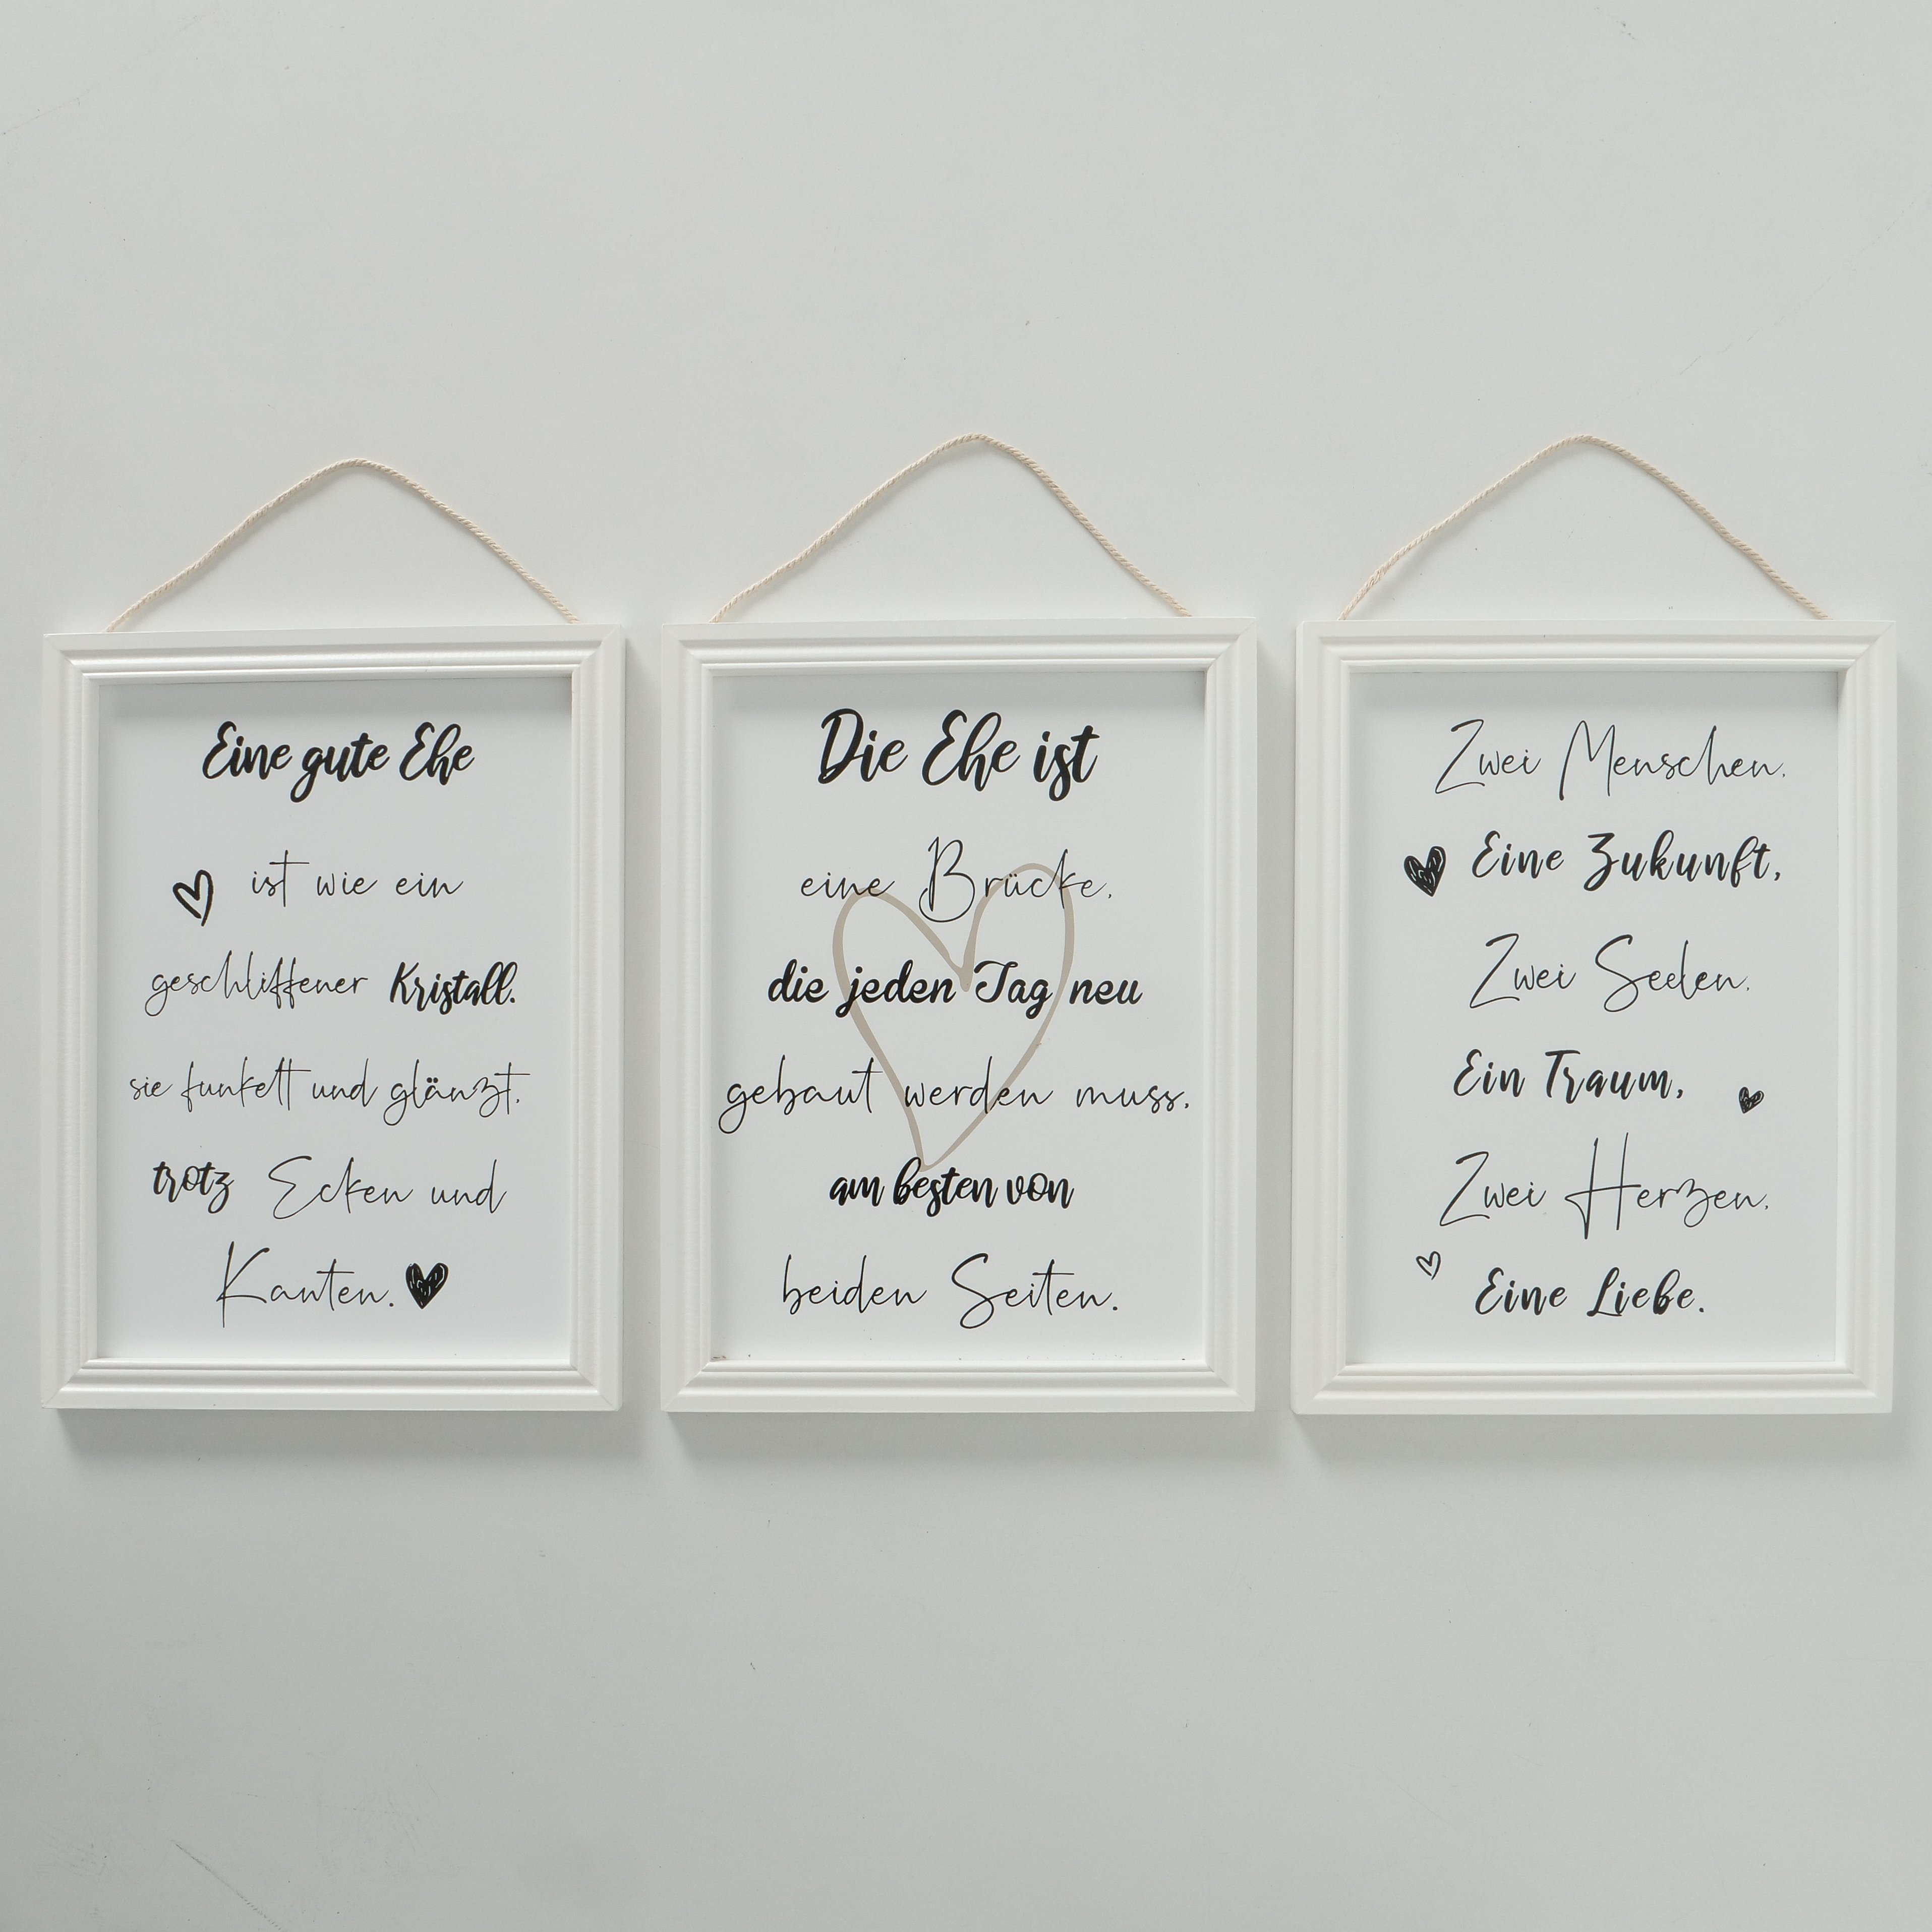 Eine gute Ehe
ist wie ein
geschliffener Kristall.
sie funkelt und glänzt,
trotz Ecken und
Kanten.
Die Ehe ist
eine Brücke,
die jeden Tag neu
gebaut werden muss,
am besten von
beiden Seiten.
Zwei Menschen,
Eine Zukunft,
Zwei Seelen,
Ein Traum,
Zwei Herzen,
Eine Liebe.